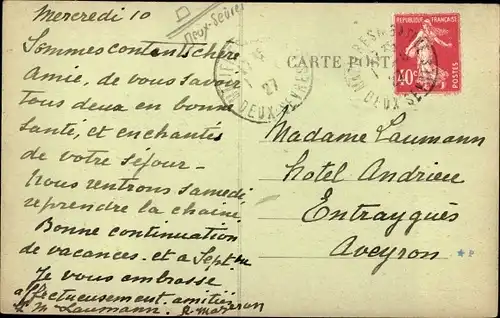 Mercredi 10
Deux-Sèvres
Sommes contents chère
Amie, de vous savoir
tous deux en bonne
santé, et enchantés
de votre séjour_
Nous rentrons samedi,
reprendre la chaîne.
Bonne continuation
de vacances. et a Sept.
Je vous embrasse
affectueusement. amitiés
à Mr Laumann.
CARTE POSTALE
27
DEUX-SEVRES
DEUX SEVRES
REPUBLIQUE FRANÇAISE
40c
POSTES
Madame Laumann
hotel Andrieu
Entraygues
Aveyron